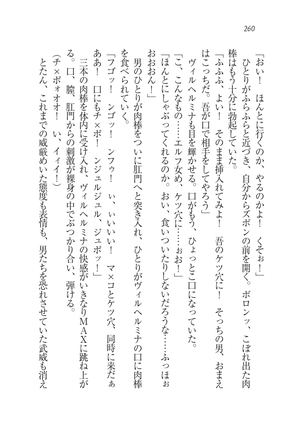 260
「おい！　ほんとに行くのか、やるのかよ！　くそぉ！」
　ひとりがふらふらと近づき、自分からズボンの前を開く。ボロンッ、こぼれ出た肉
棒はもう十分に勃起していた。
「ふふふ、よい！　そのまま挿入れてみよ！　吾のケツ穴に！　そっちの男、おまえ
はこっちだ。吾が口で相手をしてやろう」
　ヴィルヘルミナも目を輝かせる。口がもう、ひょっとこ口になっている。
「こ、こんなもの……エルフ女め、ケツ穴に……ぉお！」
「ほんとにしゃぶってくれるのか。おい、食いついたりしないだろうな……ふっほぉ
おおおん！」
　男のひとりが肉棒をついに肛門へと突き入れ、ひとりがヴィルヘルミナの口に肉棒
を食べられていく。
「フゴッ！　ンフゥ！　い、いいいい！　マ×コとケツ穴、同時に来だぁ
ああ！　口にもチ×ポ！　ンジュルジュル、ジュポッ！」
　三本の肉棒を体内に受け入れ、ヴィルヘルミナの快感がいきなりＭＡＸに跳ね上が
る。口、膣、肛門からの刺激が裸身の中でぶつかり合い、弾ける。
（チ×ポォオオ！　い、イイイ！）
　とたん、これまでの威厳めいた態度も表情も、男たちを恐れさせていた武威も消え